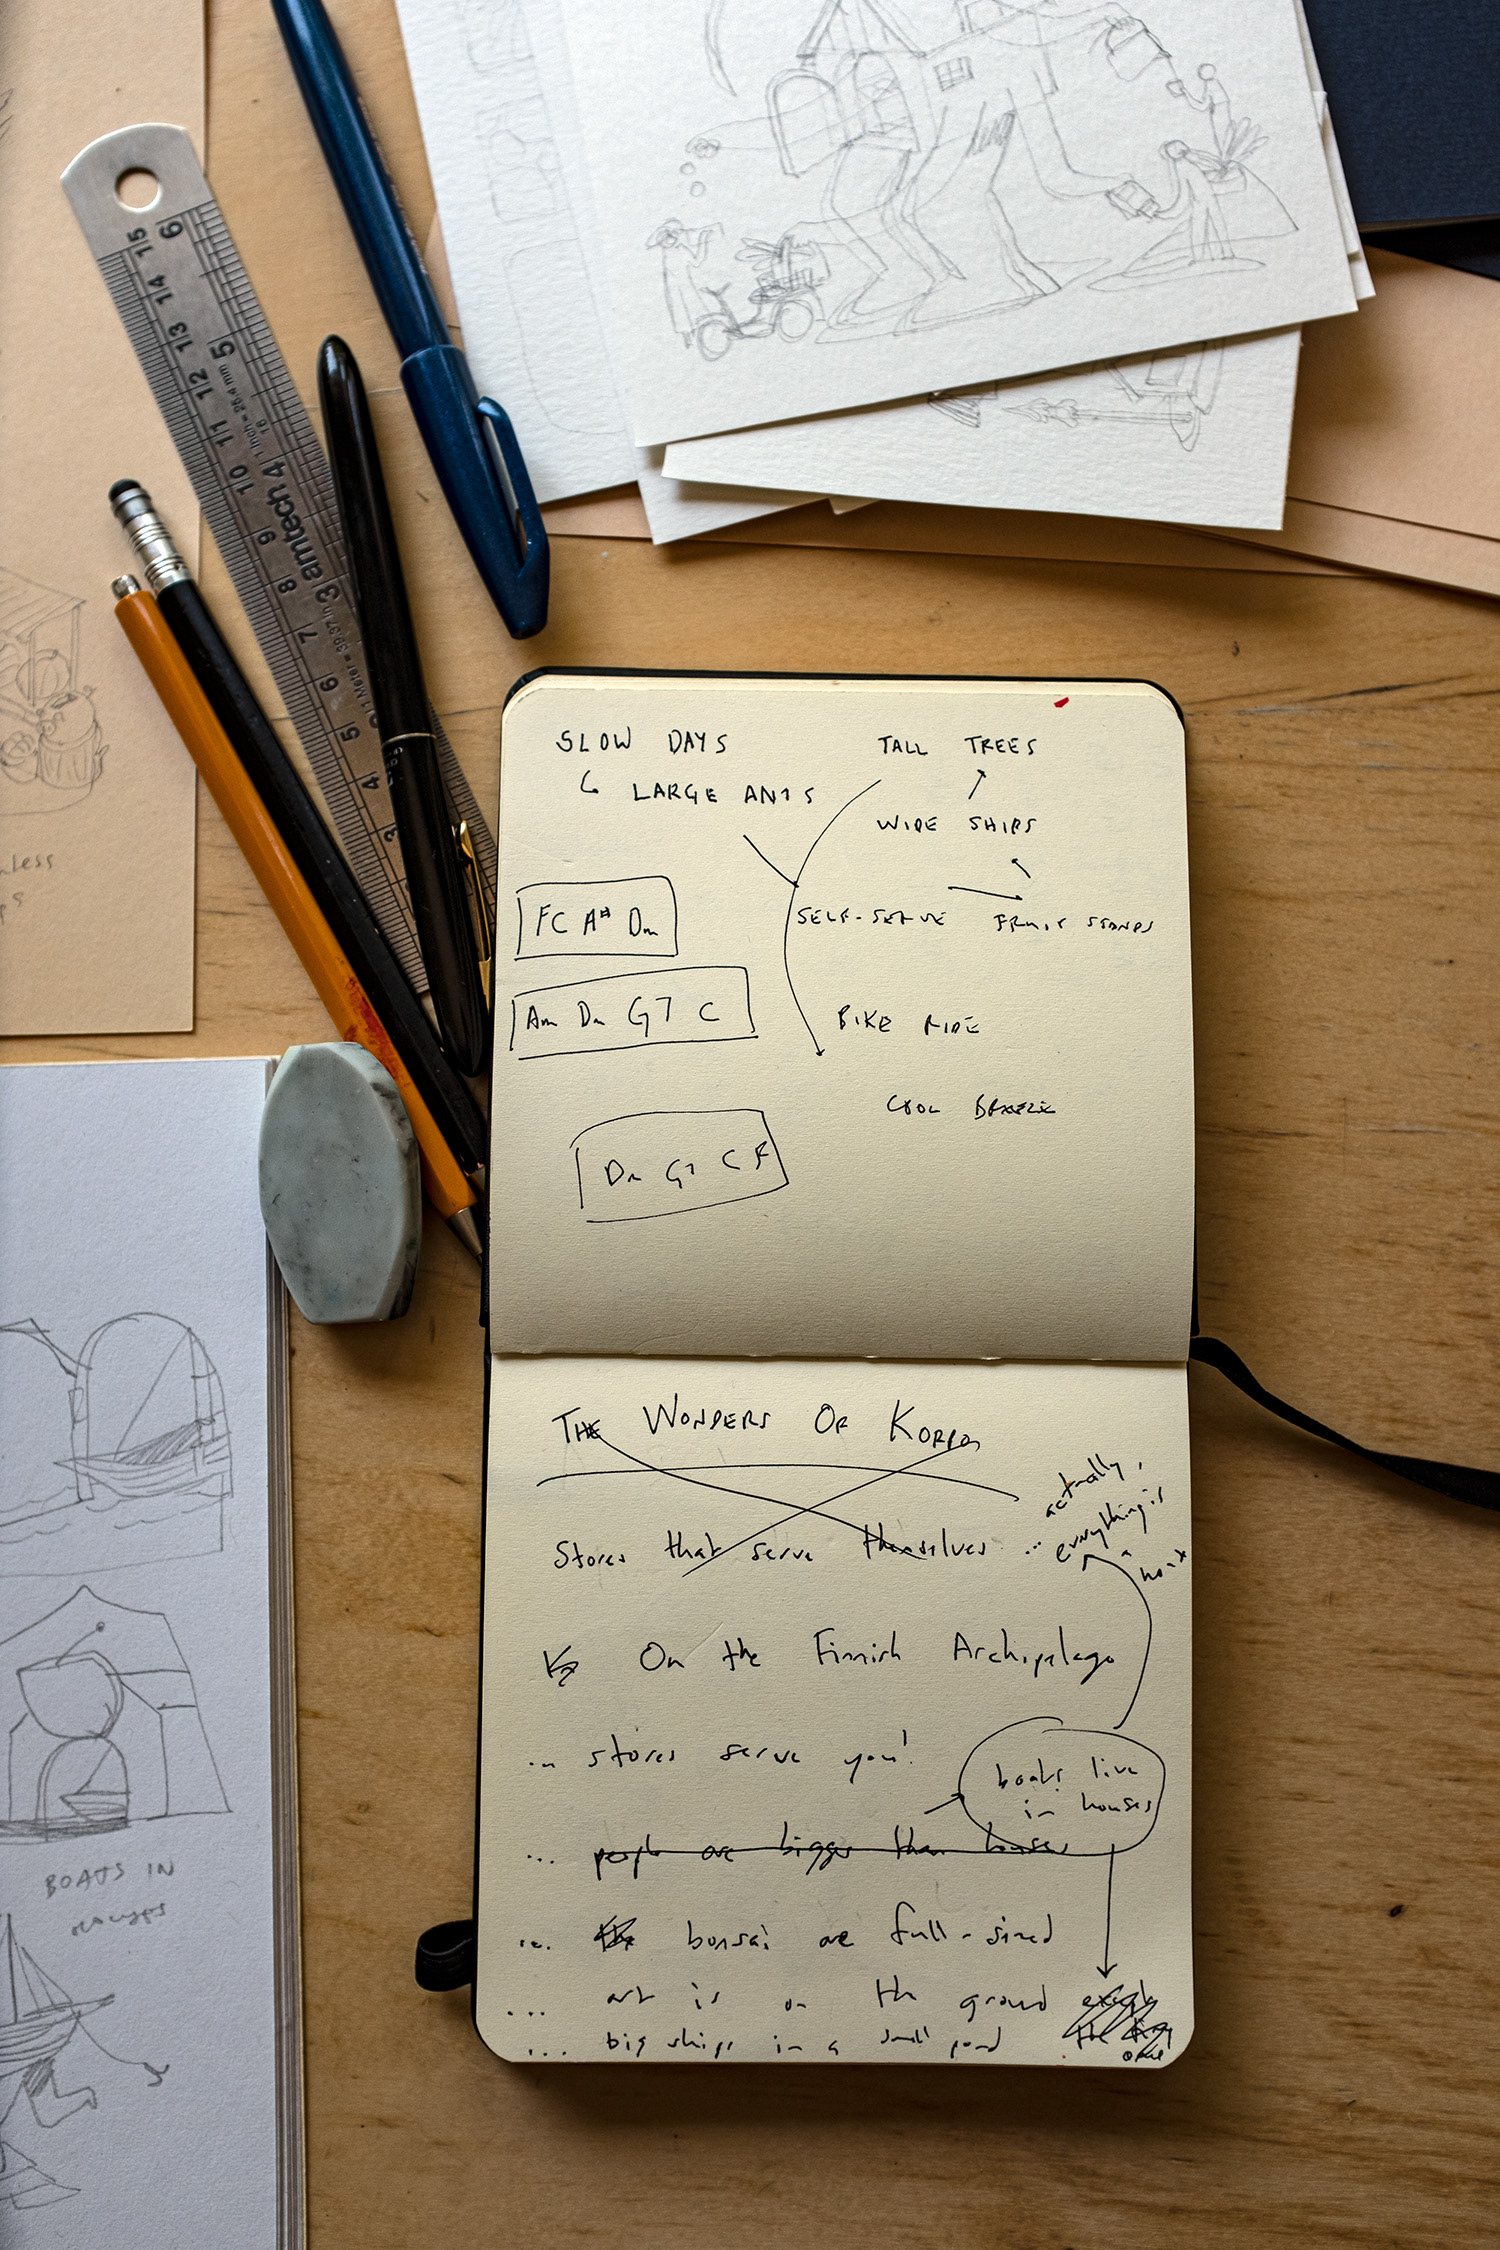 SLOW DAYS
LARGE ANTS
TALL TREES
WIDE SHIPS
SELF-SERVE FRUIT STANDS
BIKE RIDE
COOL BREEZE
FC A# Dm
Am Dm G7 C
Dm G7 C F
THE WONDERS OF KORPO
Stores that serve themselves ...
actually,
everything is
a
On the Finnish Archipelago
... stores serve you!
boats live
in houses
... people are bigger than houses
... bonsai are full-sized
... art is on the ground
... big ships in a small pond
BOATS IN
HOUSES
15 14 13 12 11 10 9 8 7 6 5 4 3
6 5 4 3
amtech
1 inch = 25.4 mm
1 Meter = 39.37 in